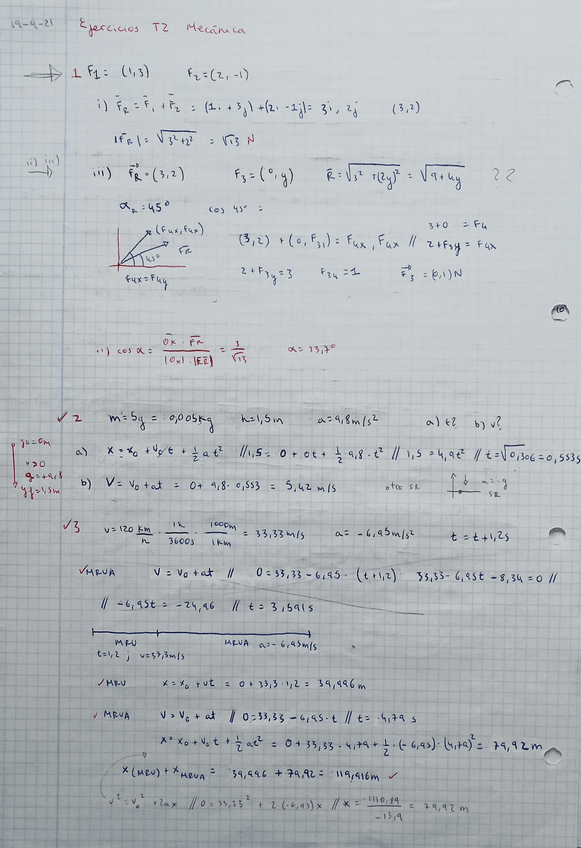 19-4-21 Ejercicios T2 Mecánica
1 F₁ = (1,3) F₂ = (2,-1)
i) F_R = F₁ + F₂ = (1i + 3j) + (2i - 1j) = 3i, 2j (3,2)
|F_R| = √3²+2² = √13 N
ii) iii)
iii) F_R = (3,2) F₃ = (0,y) R = √3² + (2y)² = √9+4y ??
α_R = 45° cos 45° =
(F4x, F4x)
F_R
45°
F4x = F4y
(3,2) + (0, F₃) = F4x, F4x // 3+0 = F4
2+F3y = F4x
2 + F3y = 3 F3y = 1 F₃ = (0,1) N
ii) cos α = Ox · F_R / |Ox| · |F_R| = 3/√13 α = 33,7°
✓ 2 m = 5g = 0,005kg h = 1,5m a = 9,8m/s² a) t? b) v?
y0 = 0m
v>0
g = +9,8
yf = 1,5m
a) x = x₀ + v₀t + 1/2 a t² // 1,5 = 0 + 0t + 1/2 9,8 · t² // 1,5 = 4,9t² // t = √0,306 = 0,553s
b) V = V₀ + at = 0 + 9,8 · 0,553 = 5,42 m/s otro SR a = -g
SR
✓ 3 v = 120 km/h · 1h/3600s · 1000m/1km = 33,33 m/s a = -6,95 m/s² t = t+1,2s
✓ MRUA V = V₀ + at // 0 = 33,33 - 6,95 · (t+1,2) 33,33 - 6,95t - 8,34 = 0 //
// -6,95t = -24,96 // t = 3,591s
MRU MRUA a = -6,95m/s
t = 1,2 ; v = 33,3m/s
✓ MRU x = x₀ + vt = 0 + 33,3 · 1,2 = 39,996 m
✓ MRUA V = V₀ + at // 0 = 33,33 - 6,95 · t // t = 4,79 s
x = x₀ + v₀t + 1/2 at² = 0 + 33,33 · 4,79 + 1/2 · (-6,95) · (4,79)² = 79,92 m
x(MRU) + x MRUA = 39,996 + 79,92 = 119,916m ✓
v² = v₀² + 2ax // 0 = 33,33² + 2 (-6,95) x // x = -1110,89/-13,9 = 79,92 m